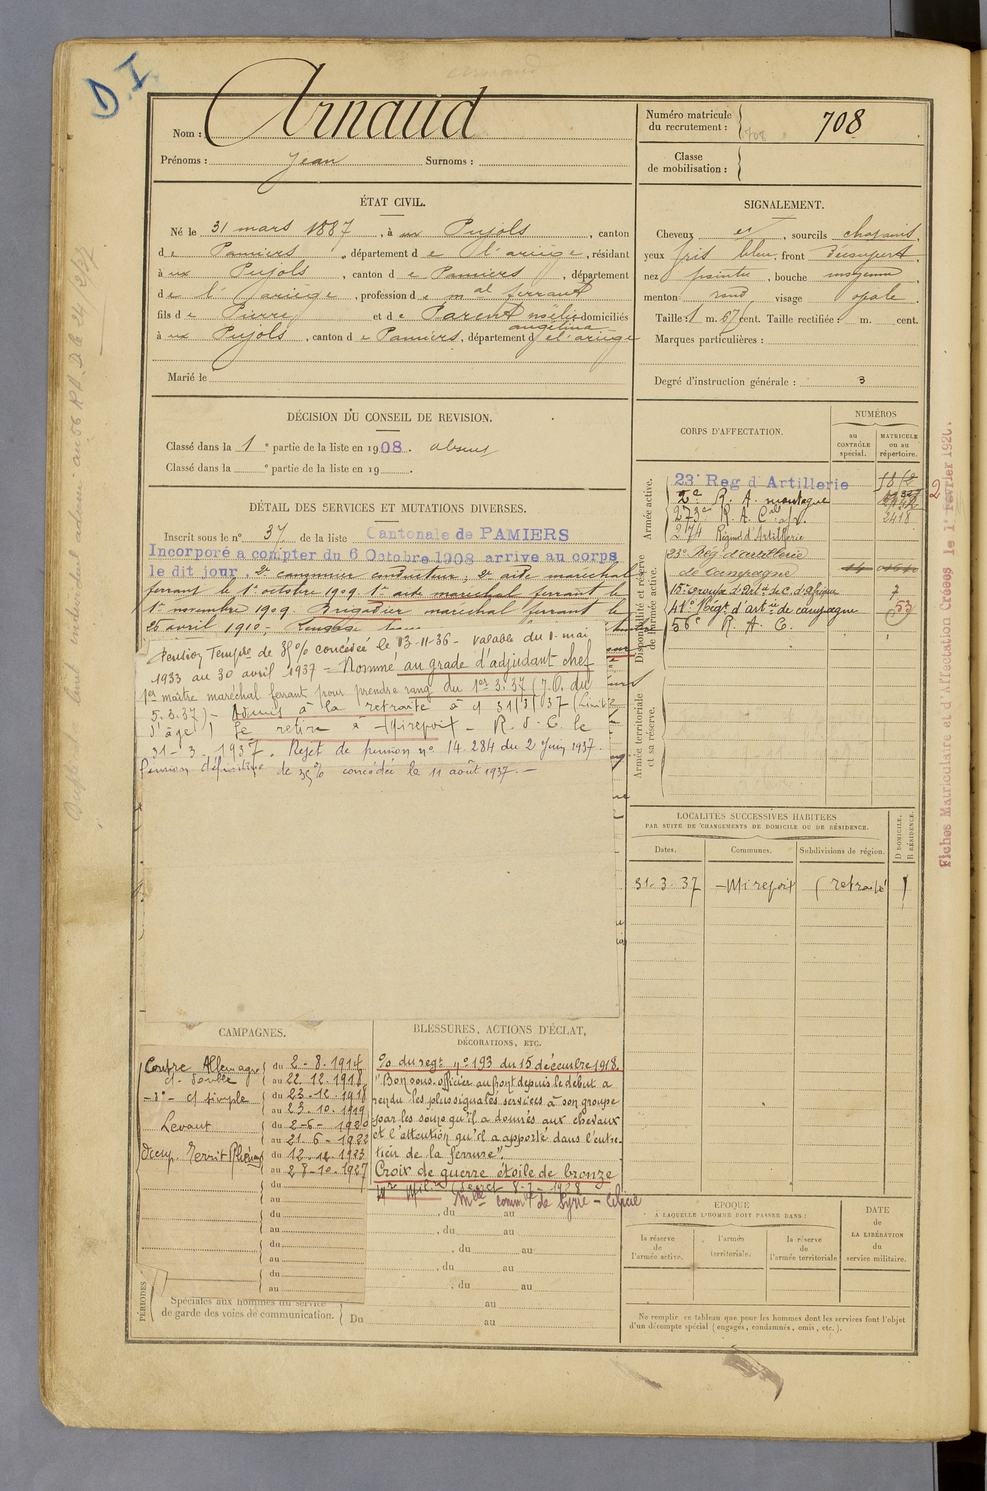 D.I.
Nom : Arnaud
Prénoms : Jean Surnoms :
Numéro matricule
du recrutement : 708
Classe
de mobilisation :
ÉTAT CIVIL.
Né le 31 mars 1887, à Pujols, canton
de Pamiers, département de l'ariège, résidant
à Pujols, canton de Pamiers, département
de l'ariège, profession de mal ferrant
fils de Pierre et de Parent noélie domiciliés
angélina
à Pujols, canton de Pamiers, département de l'ariège
Marié le
SIGNALEMENT.
Cheveux et, sourcils chatains,
yeux gris bleu, front découvert,
nez pointu, bouche moyenne
menton rond, visage ovale
Taille : 1 m. 67 cent. Taille rectifiée : m. cent.
Marques particulières :
Degré d'instruction générale : 3
DÉCISION DU CONSEIL DE REVISION.
Classé dans la 1e partie de la liste en 1908. absent
Classé dans la e partie de la liste en 19 .
DÉTAIL DES SERVICES ET MUTATIONS DIVERSES.
Inscrit sous le n° 37 de la liste Cantonale de PAMIERS
Incorporé a compter du 6 Octobre 1908 arrive au corps
le dit jour. 2e canonnier conducteur; 2e aide maréchal
ferrant le 1er octobre 1909. 1er aide maréchal ferrant le
1er novembre 1909. Brigadier maréchal ferrant le
26 avril 1910.
Pension Temple de 35% concédée le 13-11-36 - valable du 1. mai
1933 au 30 avril 1937 = Nommé au grade d'adjudant chef
1er maître maréchal ferrant pour prendre rang du 1er 3.37 (J.O. du
5.3.37) - Admis à la retraite à c/ 31/3/37 (limite
d'âge) Se retire à Mirepoix - R.d.C. le
31-3-1937. Rejet de pension n° 14.284 du 2 Juin 1937.
Pension définitive de 35% concédée le 11 août 1937. -
CORPS D'AFFECTATION.
NUMÉROS
au
CONTRÔLE
spécial.
MATRICULE
ou au
répertoire.
Armée active.
23e Reg d'Artillerie
2e R. A. montagne
273e R. A. C
3418
274 Régim d'Artillerie
Disponibilité et réserve
de l'armée active.
23e Rég d'artillerie
de campagne
15e Groupe d'Artie de C. d'Afrique 7
41e Regt d'artie de campagne 53
56e R. A. C.
Armée territoriale
et sa réserve.
LOCALITÉS SUCCESSIVES HABITÉES
PAR SUITE DE CHANGEMENTS DE DOMICILE OU DE RÉSIDENCE.
Dates. Communes. Subdivisions de région. D DOMICILE. R RÉSIDENCE.
31.3.37 Mirepoix (retraité)
CAMPAGNES.
Contre Allemagne du 2-8-1914
C. double au 22.12.1918
-d°- C simple du 23-12-1918
au 23.10.1919
Levant du 2-6-1920
au 21-6-1922
Occup. Territ Rhénan du 12-12-1923
au 28-10-1927
du
au
du
au
du
au
du
au
PÉRIODES
Spéciales aux hommes du service
de garde des voies de communication. Du au
BLESSURES, ACTIONS D'ÉCLAT,
DÉCORATIONS, ETC.
% du regt n° 193 du 15 décembre 1918.
"Bon sous-officier au front depuis le début a
rendu les plus signalés services à son groupe
par les soins qu'il a donnés aux chevaux
et l'attention qu'il a apporté dans l'entre-
tien de la ferrure".
Croix de guerre étoile de bronze
Mle commve de Syrie - Cilicie
du au
du au
du au
du au
au
EPOQUE
A LAQUELLE L'HOMME DOIT PASSER DANS :
la réserve
de
l'armée active.
l'armée
territoriale.
la réserve
de
l'armée territoriale
DATE
de
LA LIBÉRATION
du
service militaire.
Ne remplir ce tableau que pour les hommes dont les services font l'objet
d'un décompte spécial (engagés, condamnés, omis, etc.).
2 Fiches Matriculaire et d'Affectation Créées le 1er Février 1920.